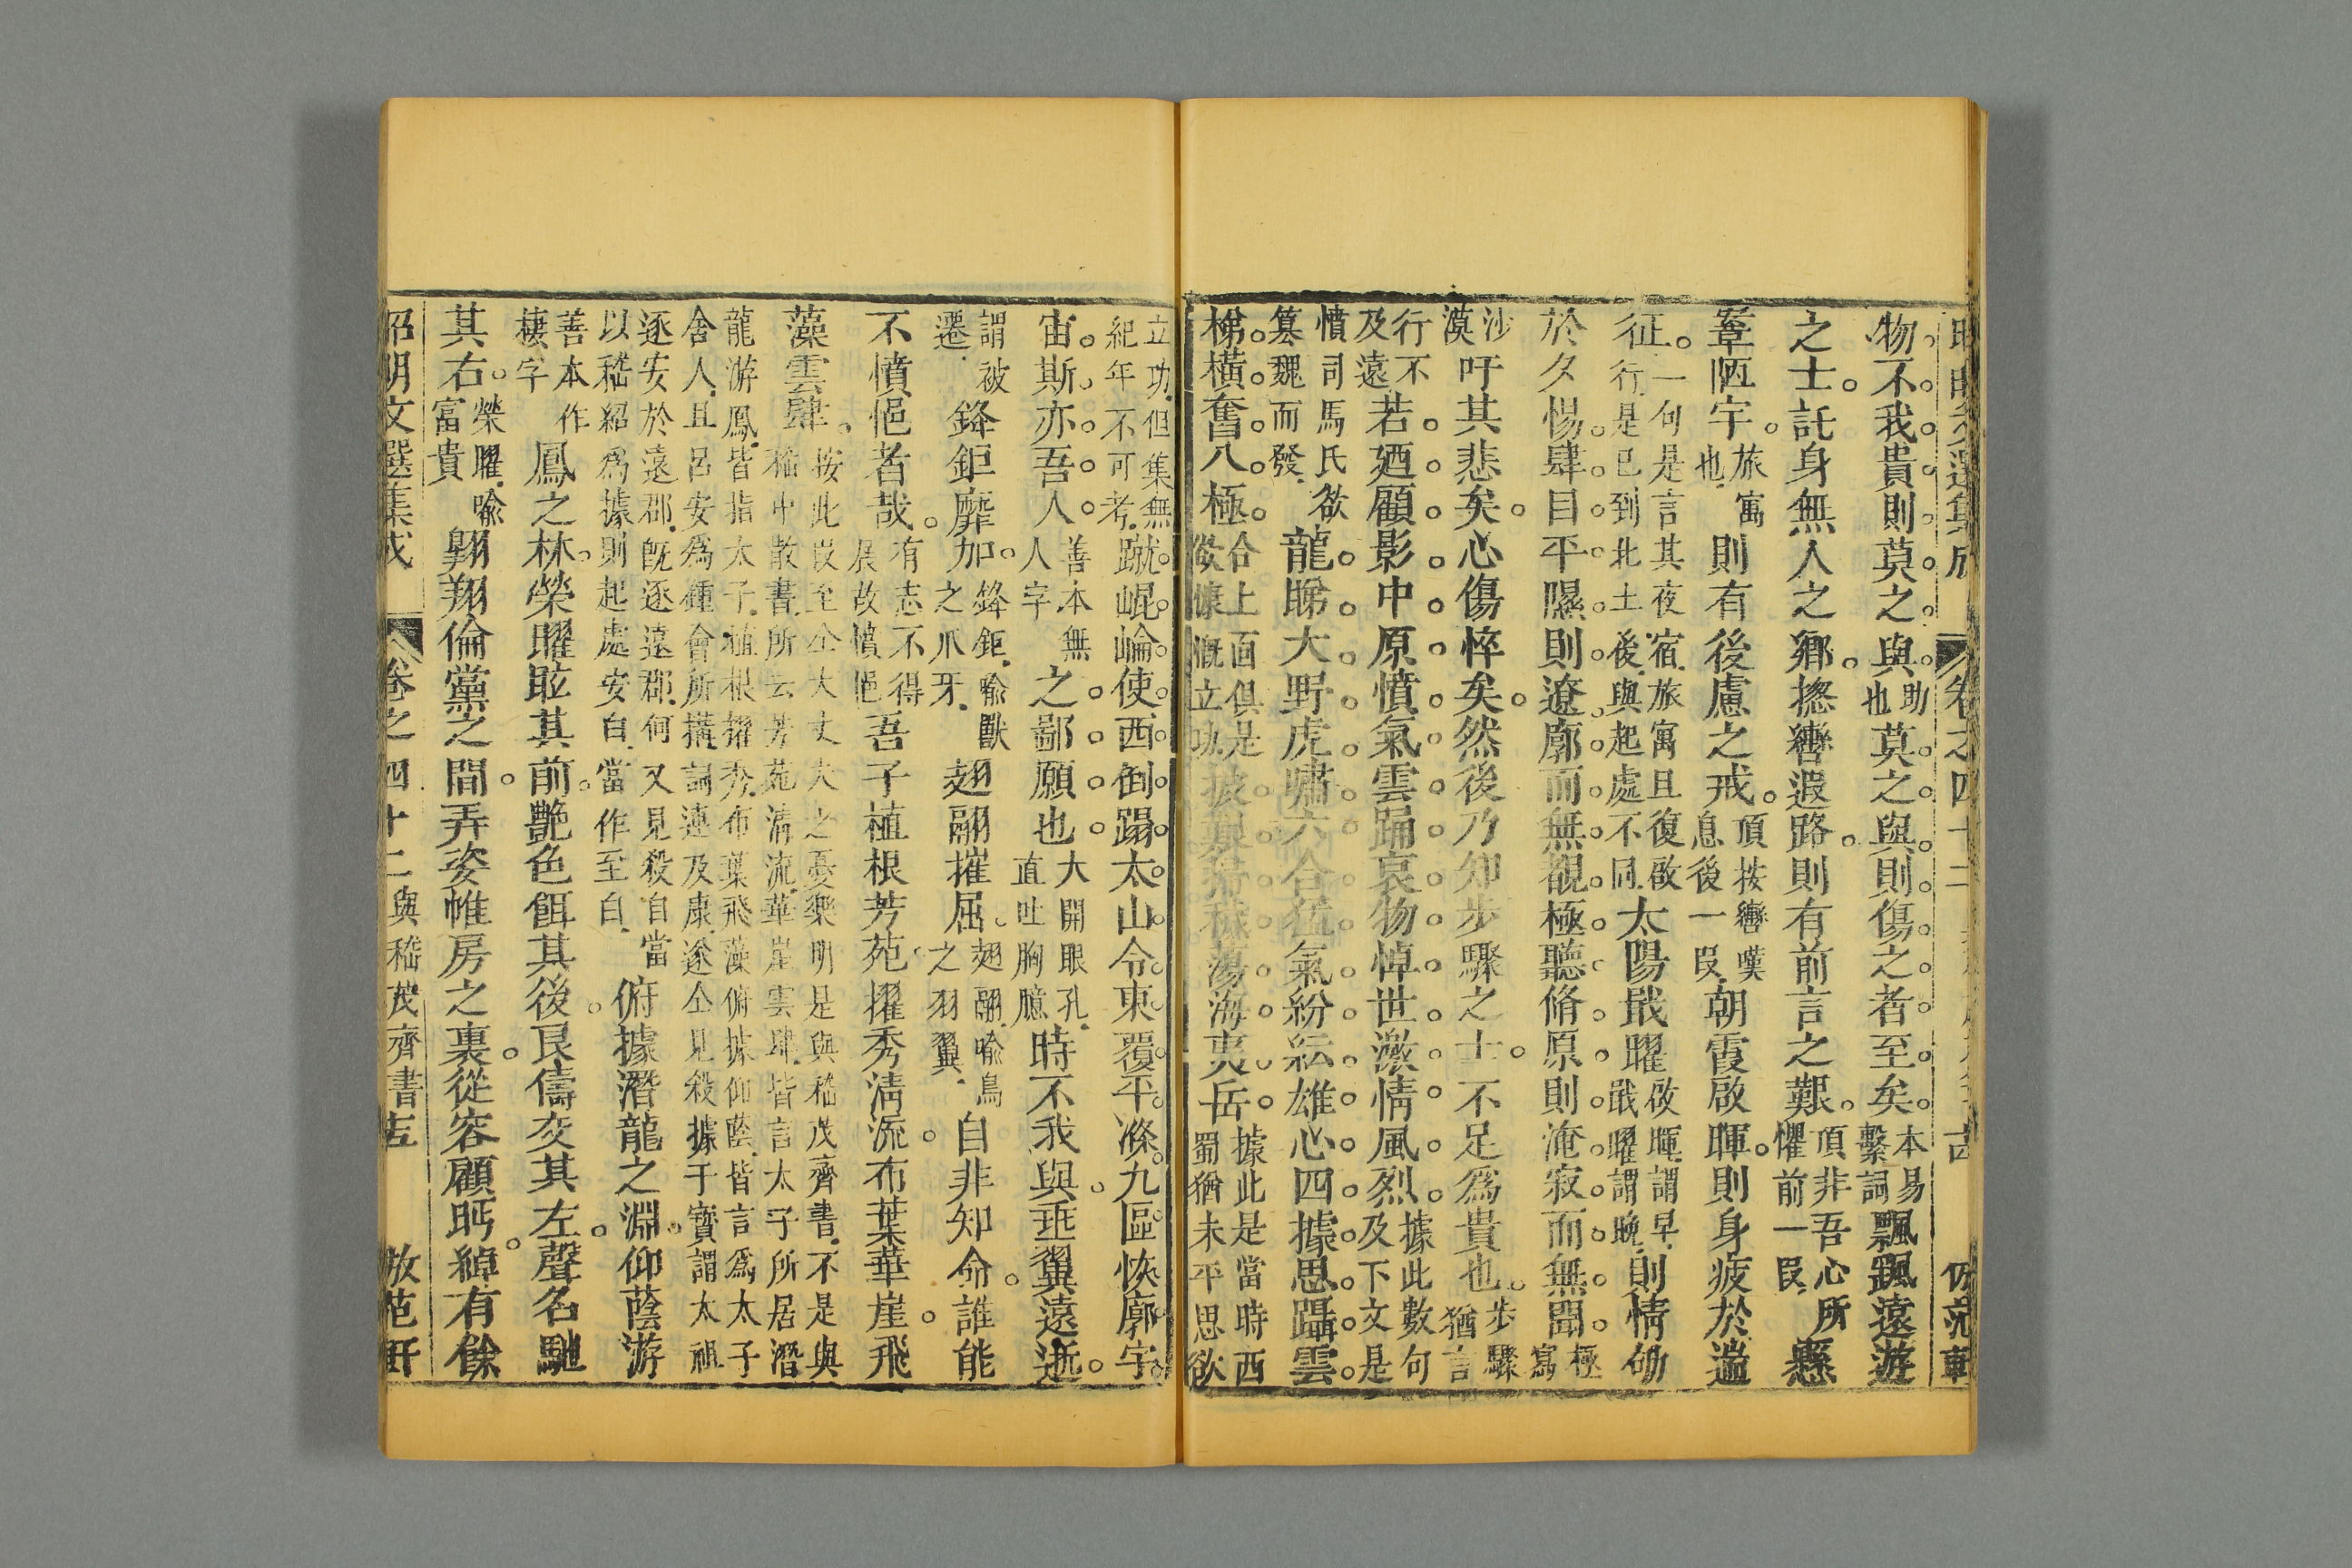 昭明文選集成 卷之四十二 仿范軒
物不我貴則莫之與助也莫之與則傷之者至矣本易繫詞飄颻遠遊
之士託身無人之鄉摠轡遐路則有前言之艱頂非吾心所懼前一段懸
鞌陋宇旅寓也則有後慮之戒頂按轡嘆息後一段朝霞啟暉則身疲於遄
征一句是言其夜宿旅寓且復啟行是已到北土後與起處不同太陽戢曜啟暉謂早戢曜謂晚則情劬
於夕惕肆目平隰則遼廓而無覩極聽脩原則淹寂而無聞極寫
沙漠吁其悲矣心傷悴矣然後乃知步驟之士不足爲貴也步驟猶言
行不及遠若廼顧影中原憤氣雲踊哀物悼世激情風烈據此數句及下文是
憤司馬氏欲篡魏而發龍睇大野虎嘯六合猛氣紛紜雄心四據思躡雲
梯橫奮八極合上面俱是慷慨立功披艱掃穢蕩海夷岳據此是當時西蜀猶未平思欲
立功但集無紀年不可考蹴崐崘使西倒蹋太山令東覆平滌九區恢廓宇
宙斯亦吾人善本無人字之鄙願也大開眼孔直吐胸臆時不我與垂翼遠逝
謂被遷鋒鉅靡加鋒鉅喻獸之爪牙翅翮摧屈翅翮喻鳥之羽翼自非知命誰能
不憤悒者哉有志不得展故憤悒吾子植根芳苑擢秀清流布葉華崖飛
藻雲肆按此段至仝大丈夫之憂樂明是與嵇茂齊書不是與嵇中散書所云芳苑清流華崖雲肆皆言太子所居潛
龍游鳳皆指太子植根擢秀布葉飛藻俯據仰蔭皆言爲太子舍人且呂安爲鍾會所搆詞連及康遂仝見殺據于寶謂太祖
逐安於遠郡旣逐遠郡何又見殺自當以嵇紹爲據則起處安白當作至白俯據潛龍之淵仰蔭游
善本作棲字鳳之林榮曜眩其前艷色餌其後良儔交其左聲名馳
其右榮曜喻富貴翺翔倫黨之間弄姿帷房之裏從容顧眄綽有餘
昭明文選集成 卷之四十二與嵇茂齊書 仿范軒